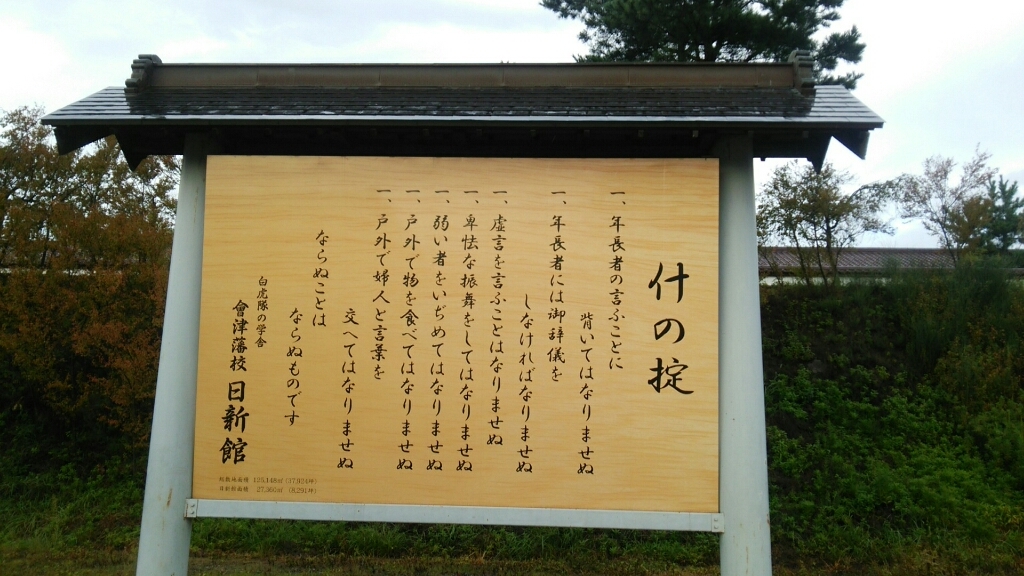 什の掟
一、年長者の言ふことに
背いてはなりませぬ
一、年長者には御辞儀を
しなければなりませぬ
一、虚言を言ふことはなりませぬ
一、卑怯な振舞をしてはなりませぬ
一、弱い者をいぢめてはなりませぬ
一、戸外で物を食べてはなりませぬ
一、戸外で婦人と言葉を
交へてはなりませぬ
ならぬことは
ならぬものです
白虎隊の学舎
會津藩校 日新館
総敷地面積 125,148㎡ (37,924坪)